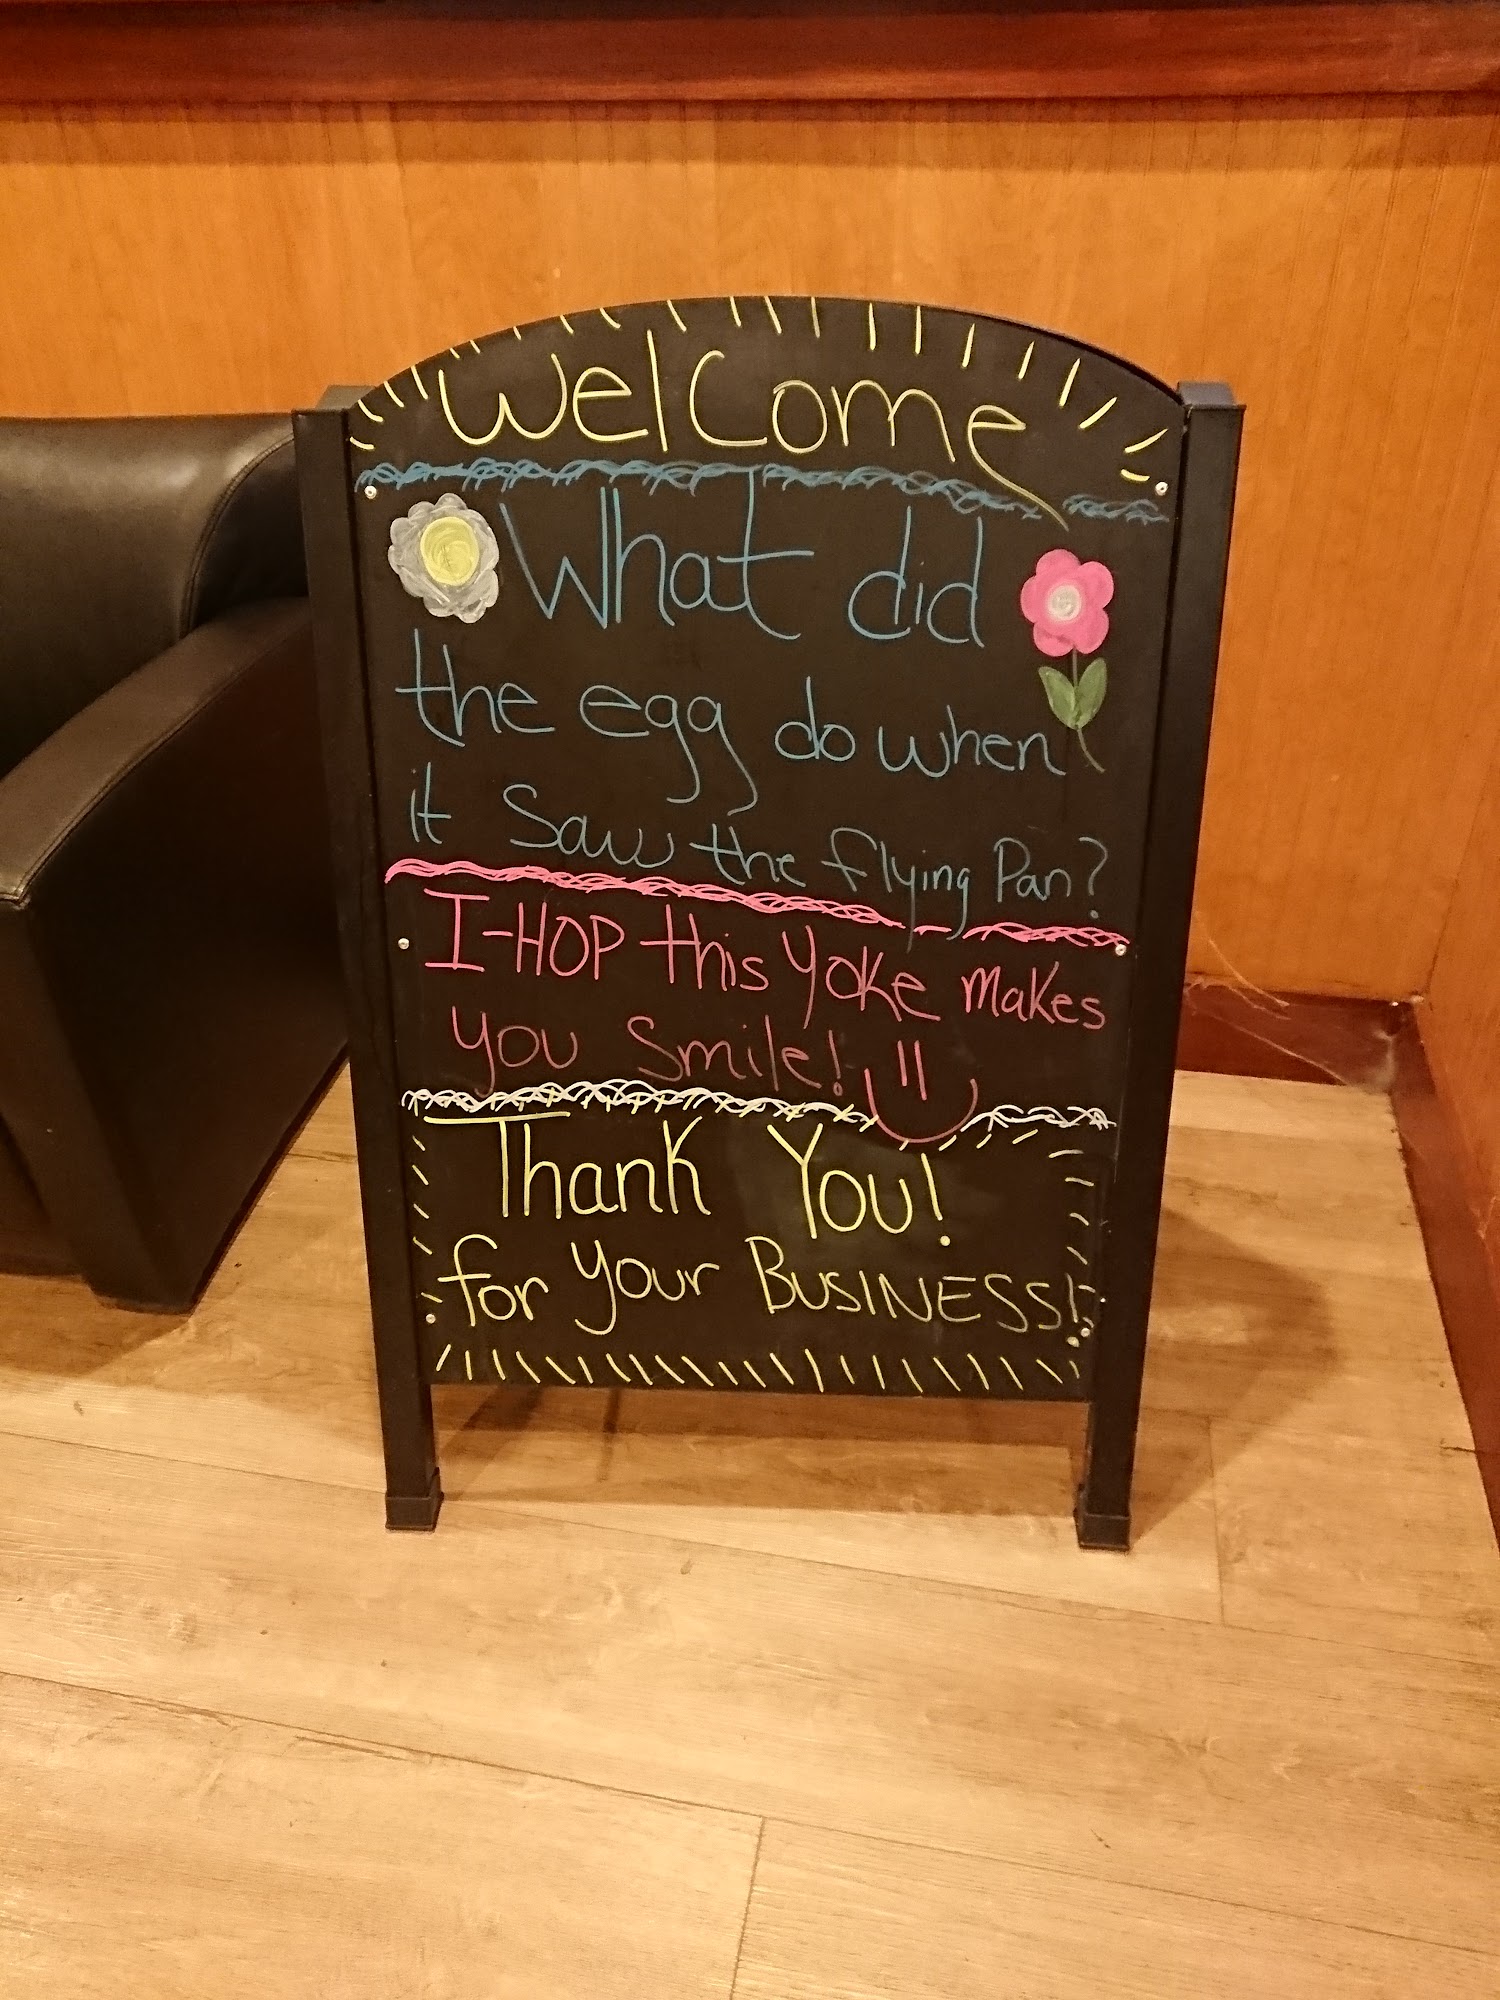 Welcome
What did
the egg do when
it Saw the flying Pan?
I-HOP this Yoke makes
you Smile!
Thank You!
for your BUSINESS!!